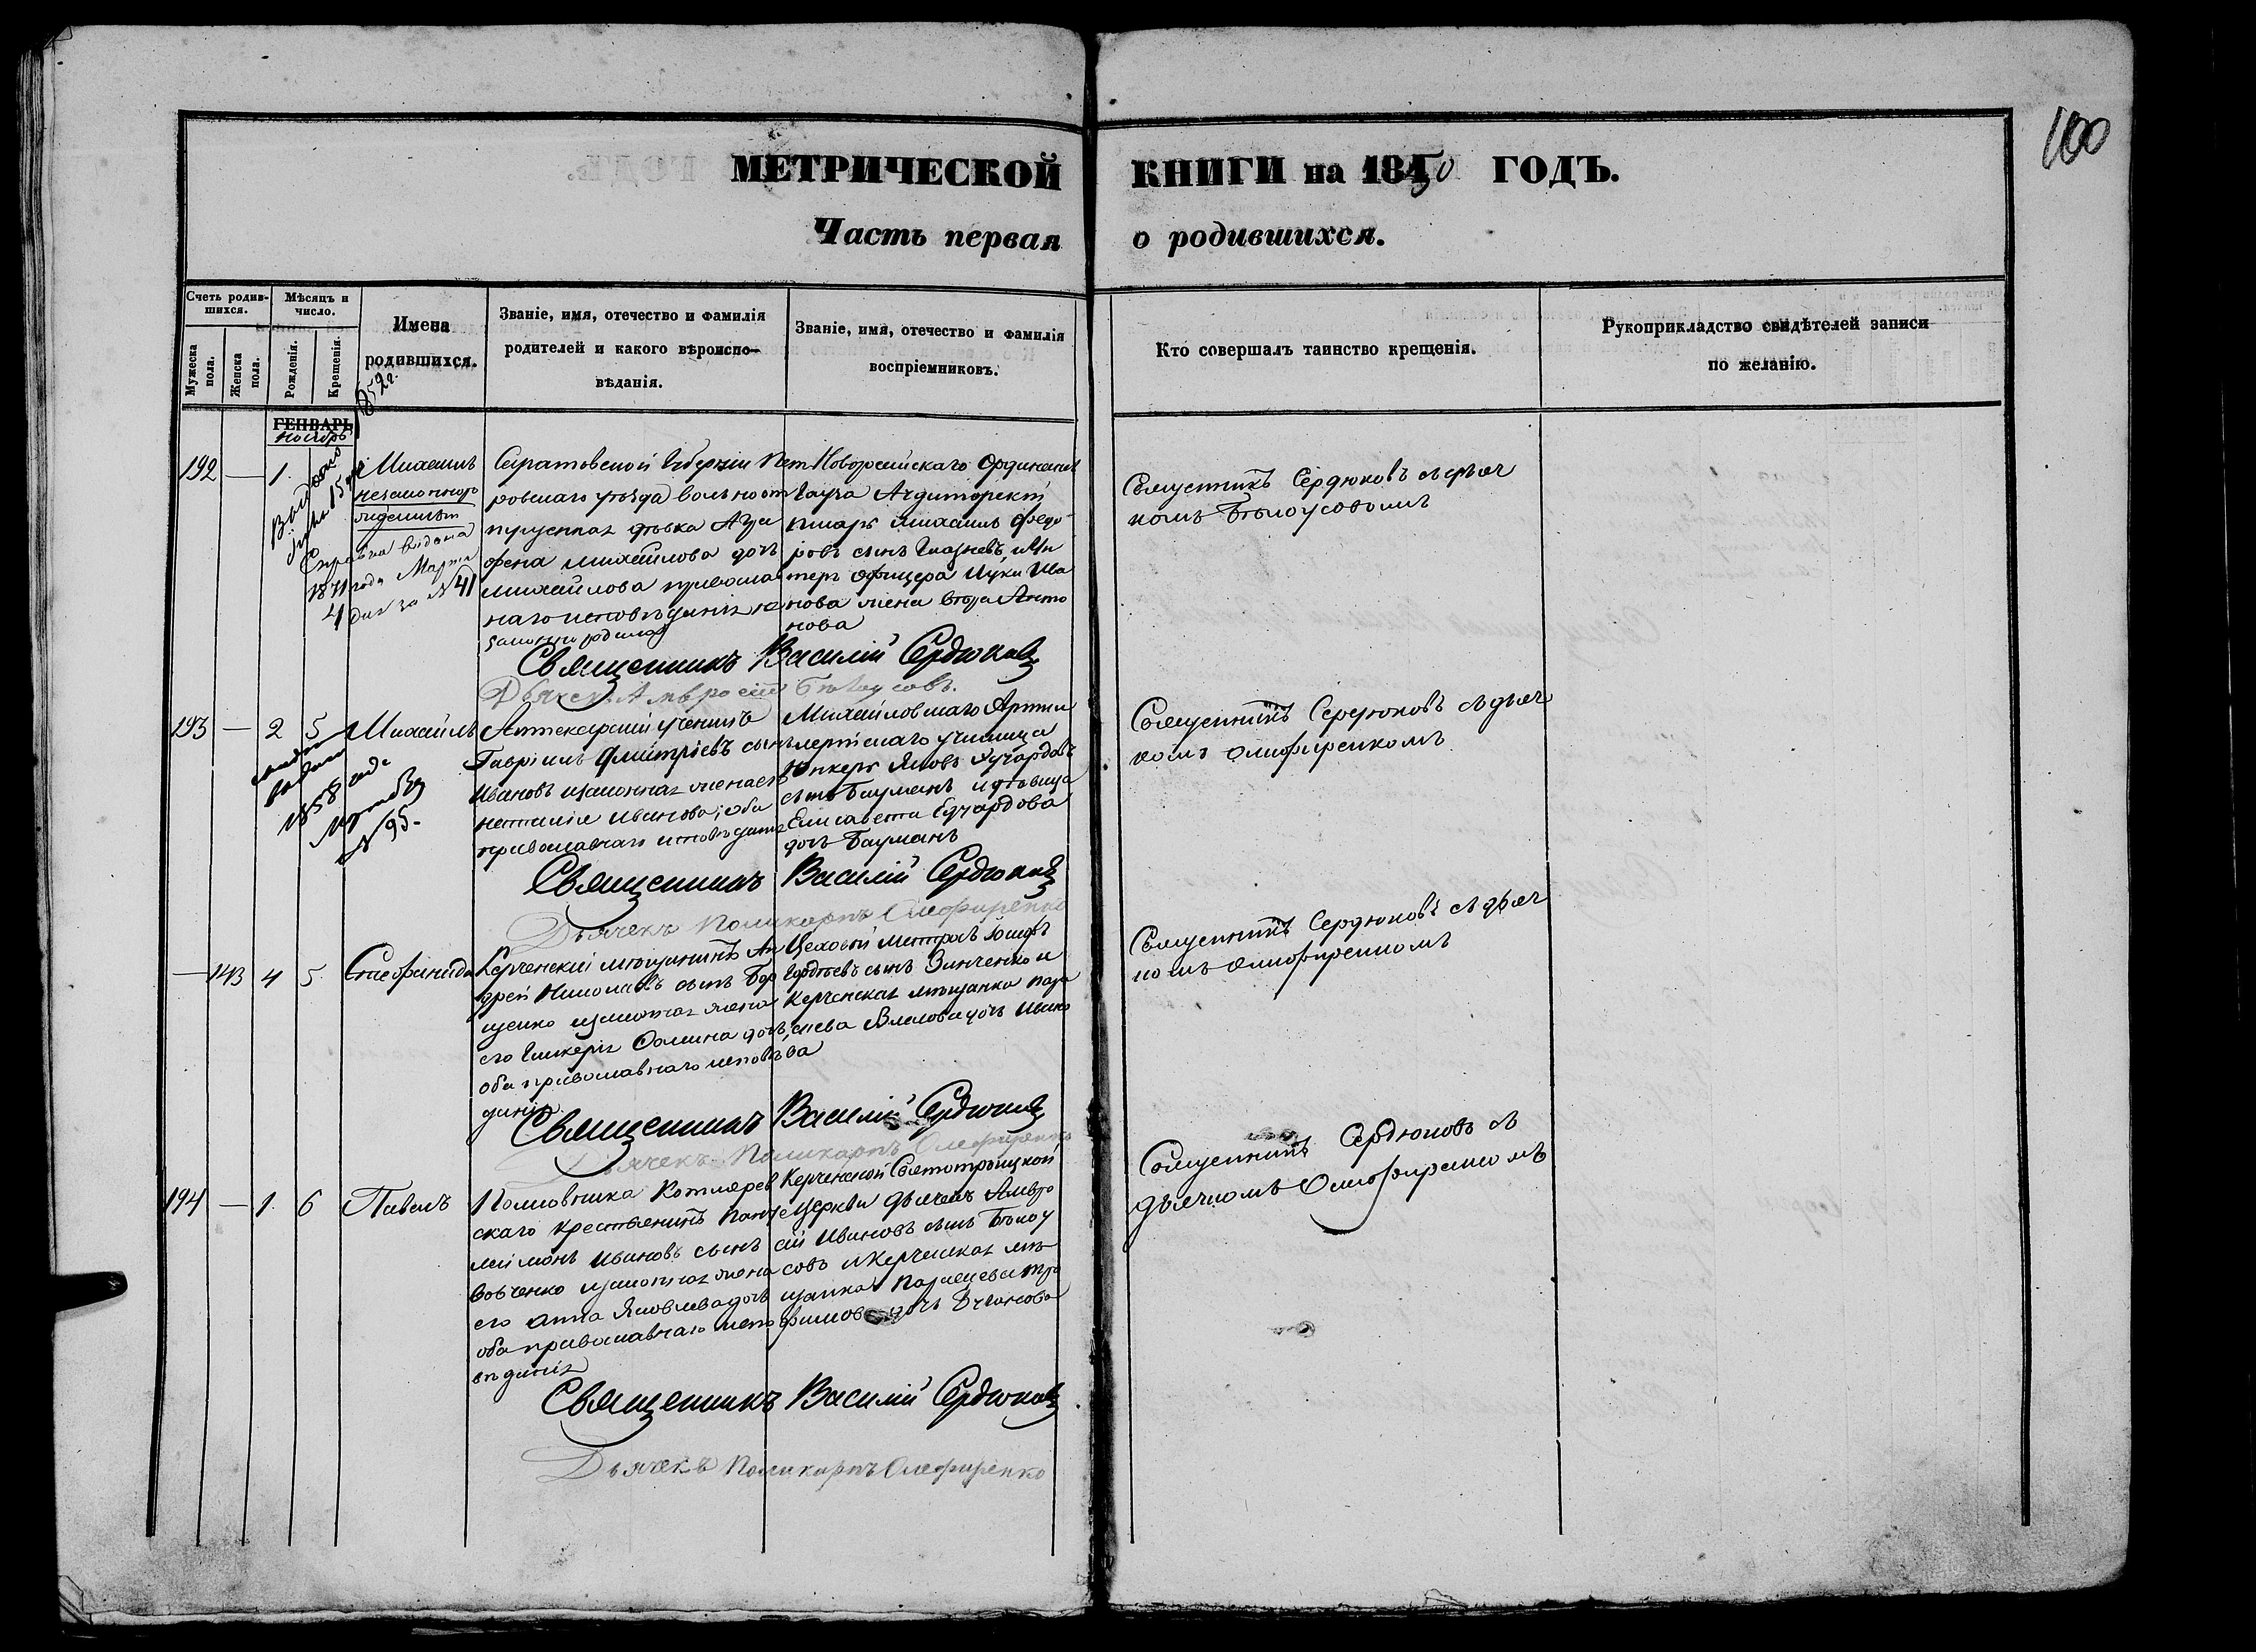 100
МЕТРИЧЕСКОЙ КНИГИ на 1850 ГОДЪ.
Часть первая о родившихся.
Счетъ родив-
шихся.
Мужеска
пола.
Женска
пола.
Мѣсяцъ и
число.
Рожденія.
Крещенія.
Имена
родившихся.
Званіе, имя, отечество и фамилія
родителей и какого вѣроиспо-
вѣданія.
Званіе, имя, отечество и фамилія
воспріемниковъ.
Кто совершалъ таинство крещенія.
Рукоприкладство свидѣтелей записи
по желанію.
ГЕНВАРЬ
ноябрь
192 — 1.
Михаилъ
незаконнорожденный
Справка видана
1871 года Марта
4 дня за № 41
Саратовской Губерніи Пет
ровскаго уѣзда вольноот
пущенная дѣвка Агра
фена Михайлова дочь
Михайлова православ
наго исповѣданія не
законно родила
Новоросійскаго Ординанс
Гауза Аудиторскій
писарь Михаилъ Федо
ровъ сынъ Глазневъ и Ун
теръ офицера Луки Ива
нова жена Анто
нова
Священникъ Сердюковъ съ дьяч
комъ Бѣлоусовымъ
Священникъ Василій Сердюковъ
Дьячекъ Амвросій Бѣлоусовъ.
193 — 2 5 Михаилъ
1858 года
№ 95.
Аптекарскій ученикъ
Гавріилъ Дмитріевъ сынъ
Ивановъ и законная жена его
Наталія Иванова; оба
православнаго исповѣданія
Михайловскаго Артил
лерійскаго училища
Юнкеръ Яковъ Эдуардовъ
сынъ Бауманъ и дѣвица
Елисавета Едуардова
дочь Бауманъ
Священникъ Сердюковъ съ дьяч
комъ Олефиренкомъ
Священникъ Василій Сердюковъ
Дьячекъ Поликарпъ Олефиренко
— 143 4 5. Стефанида
Керченскій мѣщанинъ Ан
дрей Николаевъ сынъ Бор
щенко и законная жена
его Гликерія Фомина дочь,
оба православнаго исповѣ
данія
Цеховой мастеръ Іосифъ
Гордѣевъ сынъ Зинченко и
Керченская мѣщанка Пара
скева Власова дочь Ивано
ва
Священникъ Сердюковъ съ дьяч
комъ Олефиренкомъ
Священникъ Василій Сердюковъ
Дьячекъ Поликарпъ Олефиренко
194 — 1. 6 Павелъ
Полковника Котлярев
скаго крестьянинъ Панте
леймонъ Ивановъ сынъ
Вовченко и законная жена
его Анна Яковлева дочь
оба православнаго испо
вѣданія
Керченской Святотроицкой
Церкви дьячекъ Амвро
сій Ивановъ сынъ Бѣлоу
совъ и Керченская мѣ
щанка Параскева Тро
фимова дочь
Священникъ Сердюковъ съ
дьячкомъ Олефиренкомъ
Священникъ Василій Сердюковъ
Дьячекъ Поликарпъ Олефиренко